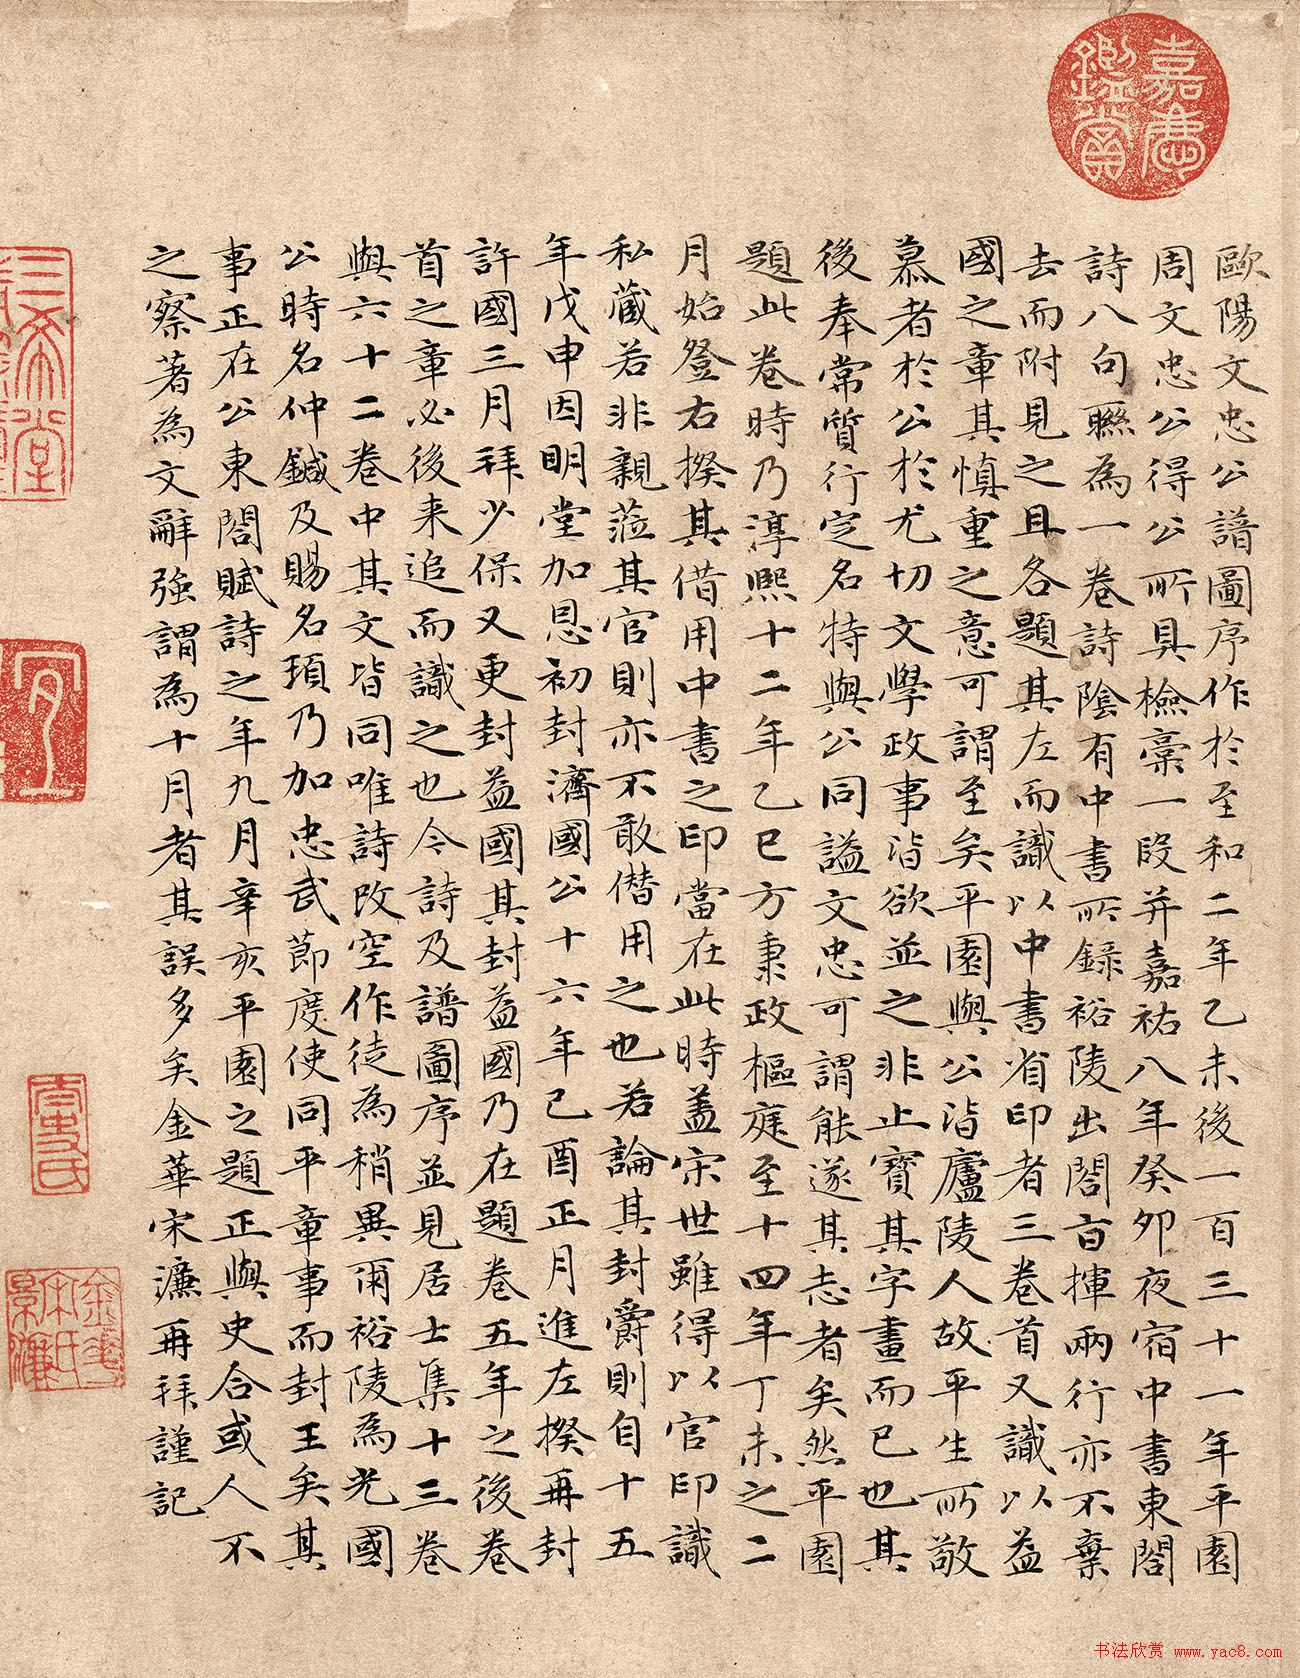 歐陽文忠公譜圖序作於至和二年乙未後一百三十一年平園
周文忠公得公所具檢稾一段并嘉祐八年癸卯夜宿中書東閤
詩八句聮為一卷詩陰有中書所錄裕陵出閤百揮兩行亦不棄
去而附見之且各題其左而識以中書省印者三卷首又識以益
國之章其慎重之意可謂至矣平園與公皆廬陵人故平生所敬
慕者於公於尤切文學政事皆欲並之非止寳其字畫而已也其
後奉常質行定名特與公同謚文忠可謂能遂其志者矣然平園
題此卷時乃淳熙十二年乙巳方秉政樞庭至十四年丁未之二
月始登右揆其借用中書之印當在此時盖宋世雖得以官印識
私藏若非親蒞其官則亦不敢僭用之也若論其封爵則自十五
年戊申因明堂加恩初封濟國公十六年己酉正月進左揆再封
許國三月拜少保又更封益國其封益國乃在題卷五年之後卷
首之章必後来追而識之也令詩及譜圖序並見居士集十三卷
與六十二卷中其文皆同唯詩改空作徒為稍異爾裕陵為光國
公時名仲鍼及賜名頊乃加忠武節度使同平章事而封王矣其
事正在公東閤賦詩之年九月辛亥平園之題正與史合或人不
之察著為文辭強謂為十月者其誤多矣金華宋濂再拜謹記
嘉慶鑑賞
三希堂
宜
金華宋氏景濂
书法欣赏 www.yac8.com